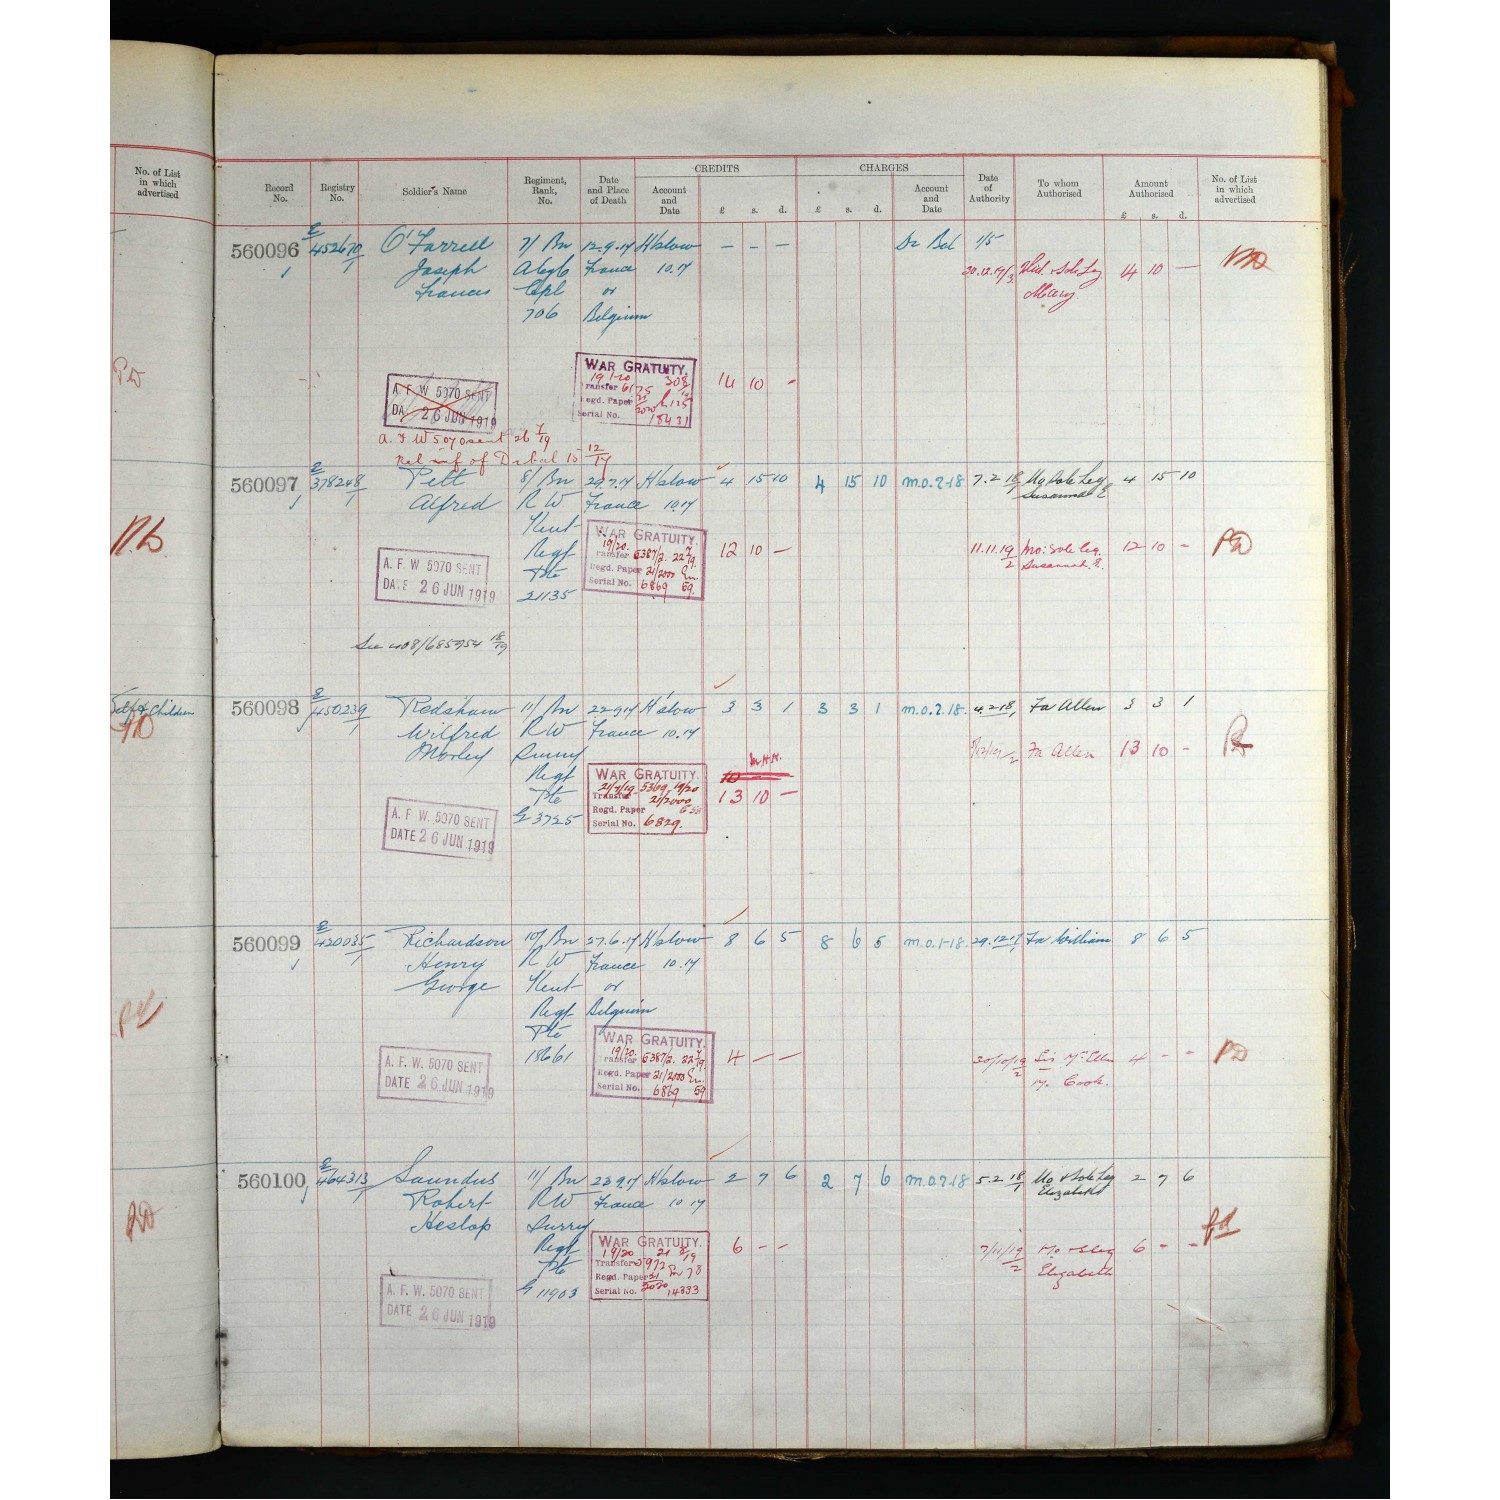 No. of List
in which
advertised
Self & Children
CREDITS
CHARGES
Record
No.
Registry
No.
Soldier's Name
Regiment,
Rank,
No.
Date
and Place
of Death
Account
and
Date
£ s. d.
£ s. d.
Account
and
Date
Date
of
Authority
To whom
Authorised
Amount
Authorised
£ s. d.
No. of List
in which
advertised
560096 E 452670/1 O'Farrell 7/ Bn 12.9.17 H'slow — — — Dr Bal 1/5
Joseph France 10.17 30.12.19/3 Wid. & Sole Leg 14 10 —
Francis Cpl or Mary
706 Belgium
WAR GRATUITY.
19/20 308
Transfer 6175
Regd. Paper
Serial No. 18431
14 10 -
A. F. W 5070 SENT
DATE 26 JUN 1919
A. F W 5070 sent 26 7/19
Rel inf of Dr bal 15 12/17
560097 E 378248/1 Pelt 8/ Bn 29.7.17 H'slow 4 15 10 4 15 10 M.O. 2-18 7.2.18 Mo Sole Leg 4 15 10
Alfred R W France 10.17 Susannah E
Kent
Regt
Pte
21135
WAR GRATUITY.
19/20.
Transfer 5387/2. 22 7/19.
Regd. Paper 21/2000 En.
Serial No. 6869 59.
12 10 — 11.11.19/2 Mo: Sole Leg. 12 10 -
Susannah E.
A. F. W 5070 SENT
DATE 26 JUN 1919
See 408/685954 18/19
560098 E 450239/1 Redshaw 11/ Bn 22.9.17 H'slow 3 3 1 3 3 1 M.O. 2.18. 4.2.18/1 Fa Allen 3 3 1
Wilfred R W France 10.17
Morley Surrey
Regt
Pte
G 3725
WAR GRATUITY.
21/7/19 5369 19/20
Transfer 21/2000
Regd. Paper
Serial No. 6829.
10 —
13 10 — Fa Allen 13 10 -
A. F. W. 5070 SENT
DATE 26 JUN 1919
560099 E 420035/1 Richardson 10/ Bn 27.6.17 H'slow 8 6 5 8 6 5 M.O. 1-18 29.12.17/1 Fa William 8 6 5
Henry R W France 10.17
George Kent or
Regt Belgium
Pte
18661
WAR GRATUITY.
19/20.
Transfer 5387/2. 22 7/19.
Regd. Paper 21/2000 En.
Serial No. 6869 59
4 — — 30/10/19/2 Sis Mrs Ellen 4 - -
M. Cook.
A. F. W. 5070 SENT
DATE 26 JUN 1919
560100 E 464313/1 Saunders 11/ Bn 23.9.17 H'slow 2 7 6 2 7 6 M.O. 2-18 5.2.18/1 Mo & Sole Leg 2 7 6
Robert R W France 10.17 Elizabeth
Heslop Surrey
Regt
Pte
G 11903
WAR GRATUITY.
19/20 21 8/19
Transfer 5972
Regd. Paper 21/3020 78
Serial No. 14333
6 - - 7/11/19/2 Mo. & S Leg 6 - -
Elizabeth
A. F. W. 5070 SENT
DATE 26 JUN 1919